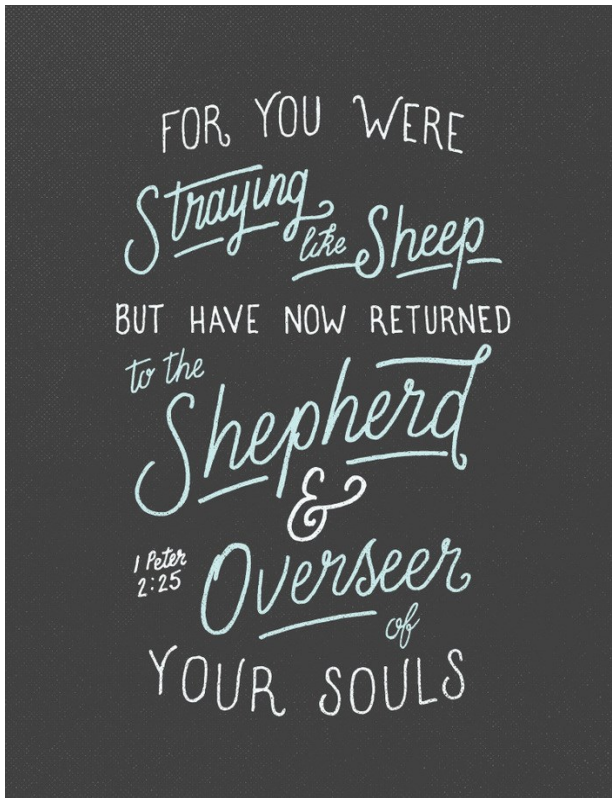 FOR YOU WERE
Straying
like Sheep
BUT HAVE NOW RETURNED
to the
Shepherd
&
1 Peter
2:25
Overseer
of
YOUR SOULS